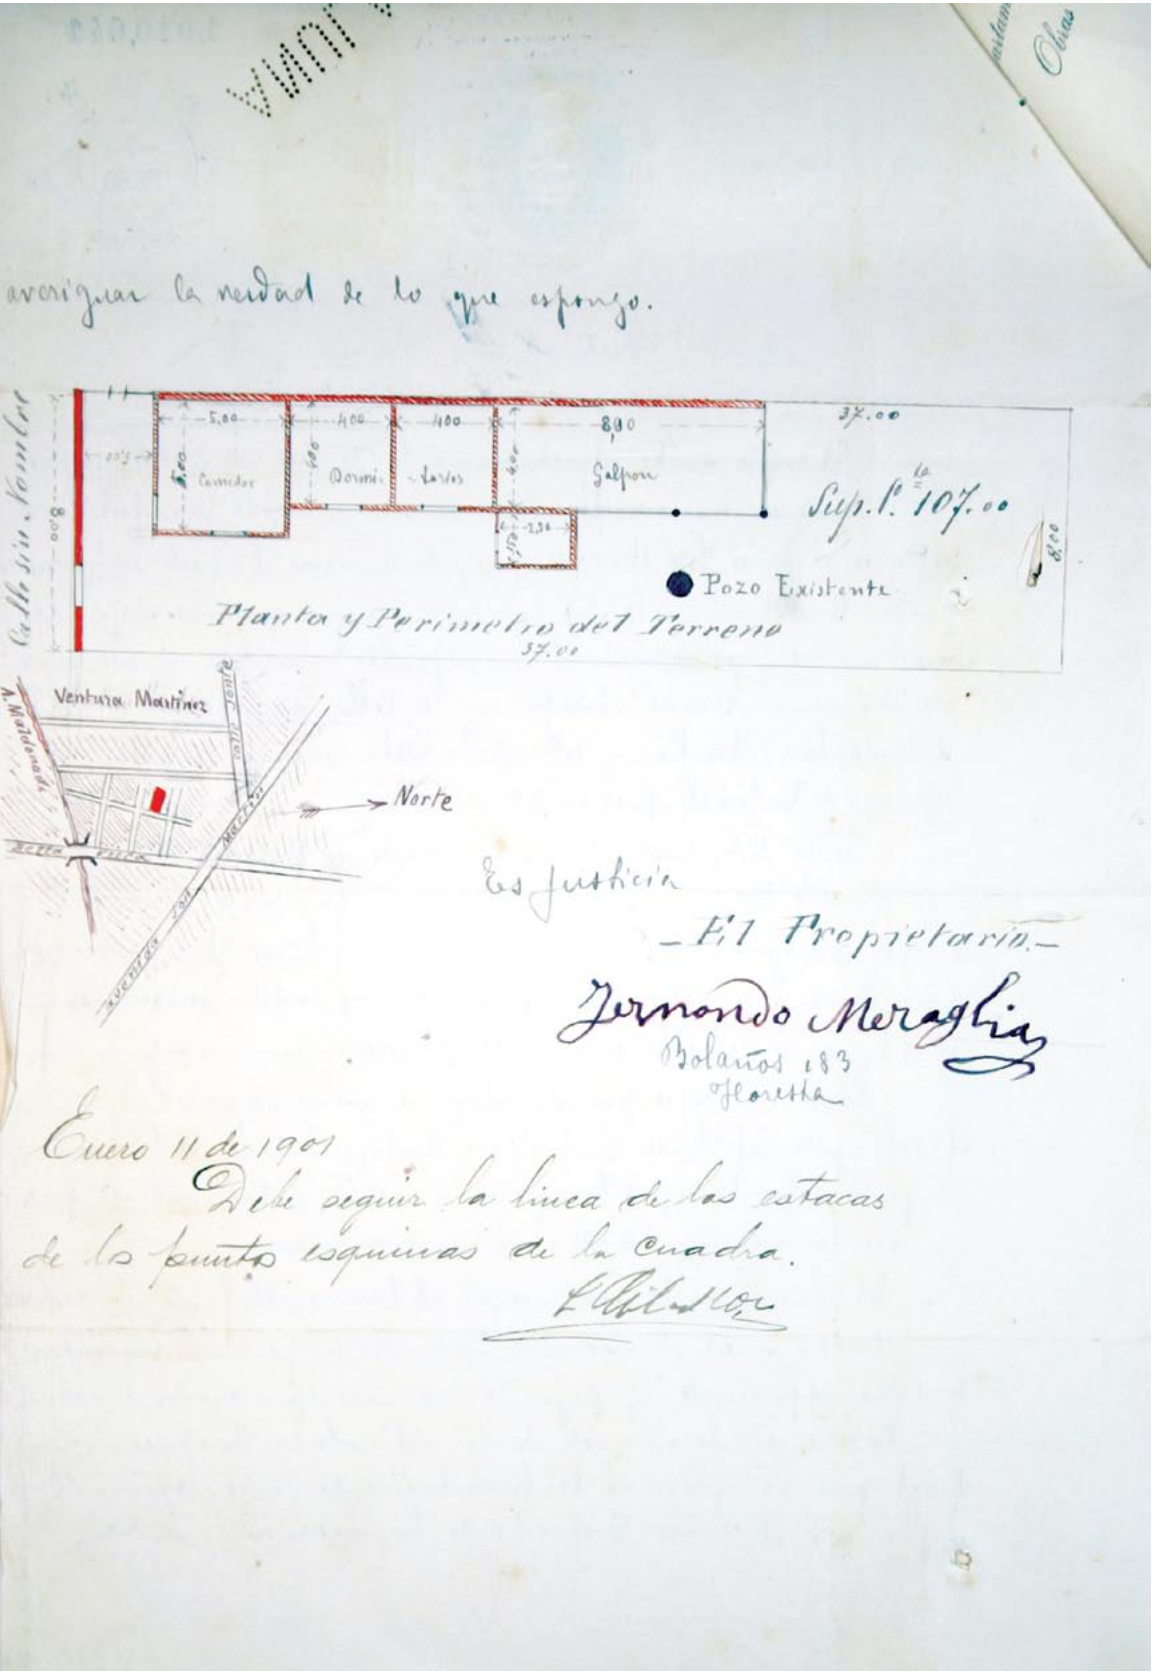 Obras
averiguar la verdad de lo que espongo.
Calle sin Nombre
8.00
5.00
5,00
5.00
Comedor
4.00
4.00
Dormi-
4.00
-torios
8,00
4.00
Galpon
37.00
Sup. 107.00
8.00
Pozo Existente
Planta y Perimetro del Terreno
37.00
A. Maldonado
Ventura Martinez
Calle Jonte
Norte
Avenida San Martin
Es Justicia
- El Propietario.-
Fernando Meraglia
Bolaños 183
Floresta
Enero 11 de 1901
Debe seguir la linea de las estacas
de los puntos esquinas de la cuadra.